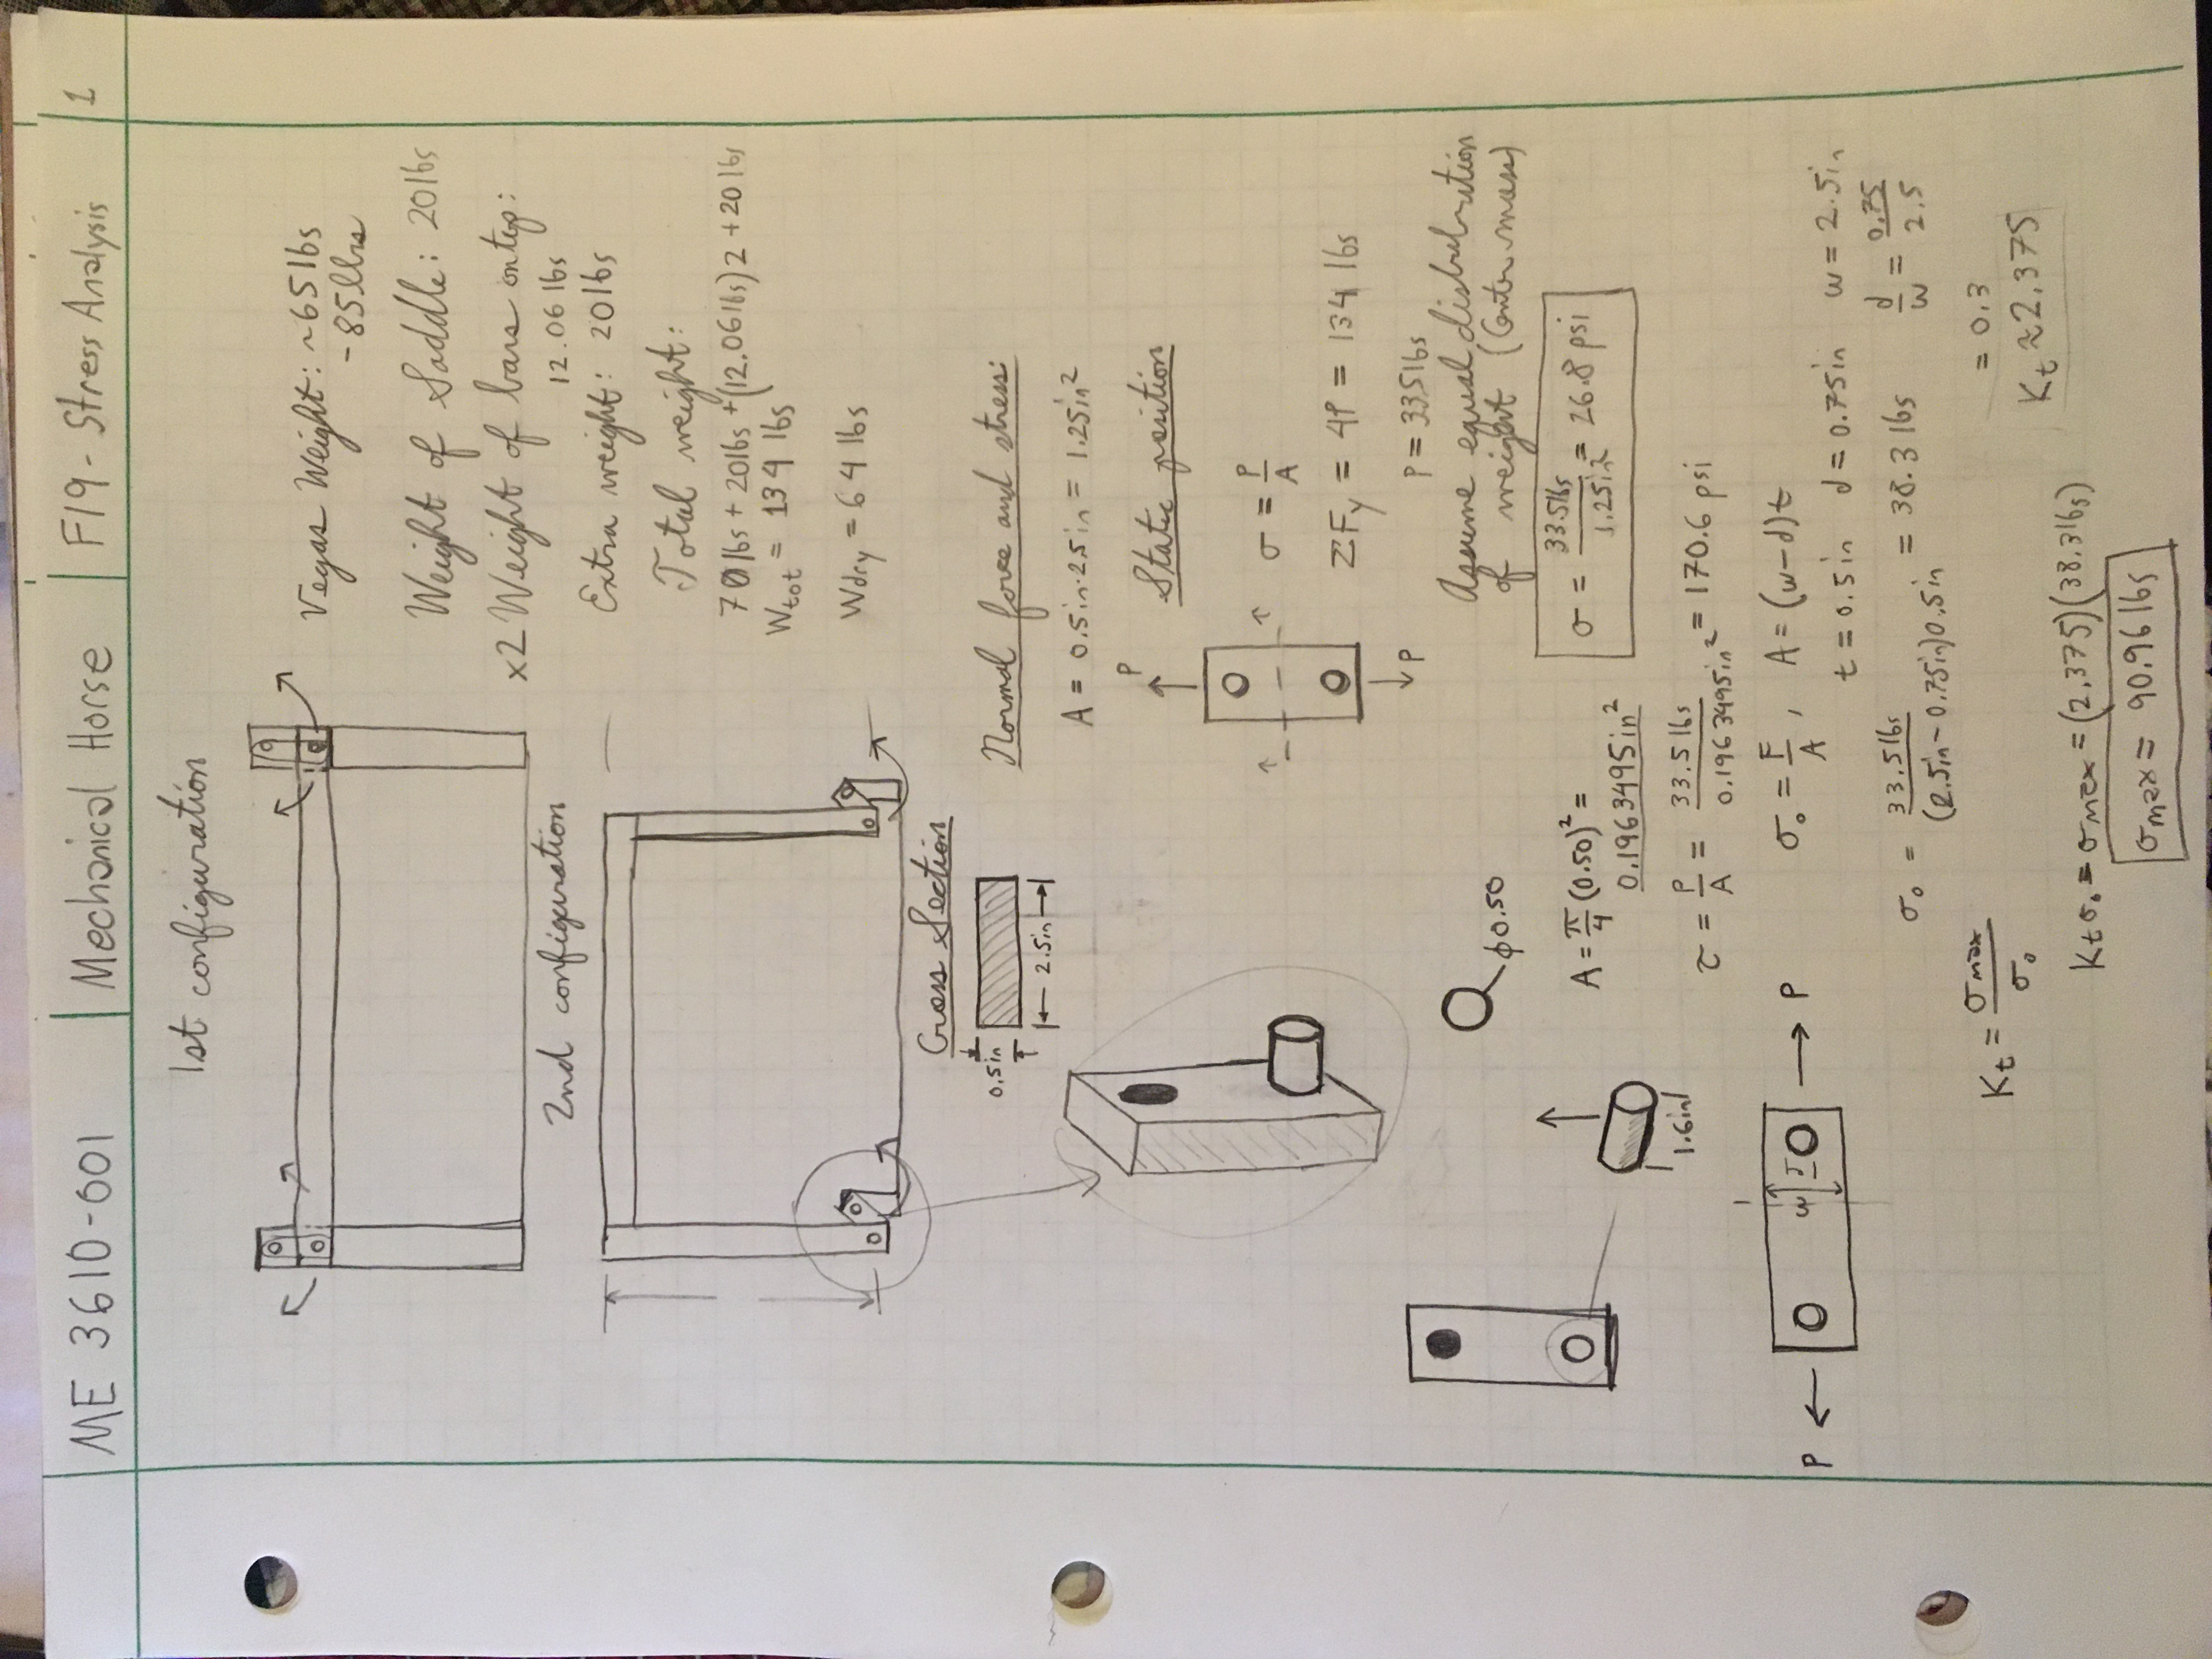 ME 3610-001 Mechanical Horse F19 - Stress Analysis 1
1st configuration
Vegas Weight: ~65 lbs
- 85 lbs
Weight of Saddle: 20 lbs
x2 Weight of bars on top:
12.06 lbs
Extra weight: 20 lbs
Total weight:
70 lbs + 20 lbs + (12.06 lbs) 2 + 20 lbs
Wtot = 134 lbs
Wdry = 64 lbs
2nd configuration
Cross Section
0.5in
2.5in
Normal force and stress:
A = 0.5in·2.5in = 1.25in²
P
Static position
σ = P/A
ΣFy = 4P = 134 lbs
P
P = 33.5 lbs
Assume equal distribution
of weight (Center mass)
σ = 33.5 lbs / 1.25in² = 26.8 psi
ϕ0.50
A = π/4 (0.50)² =
0.1963495in²
1.6in
τ = P/A = 33.5 lbs / 0.1963495in² = 170.6 psi
P w d P
σ₀ = F/A , A = (w-d)t
t = 0.5in d = 0.75in w = 2.5in
σ₀ = 33.5 lbs / (2.5in - 0.75in)0.5in = 38.3 lbs
d/w = 0.75/2.5
= 0.3
Kt ≈ 2.375
Kt = σmax / σ₀
Ktσ₀ = σmax = (2.375)(38.3 lbs)
σmax = 90.96 lbs